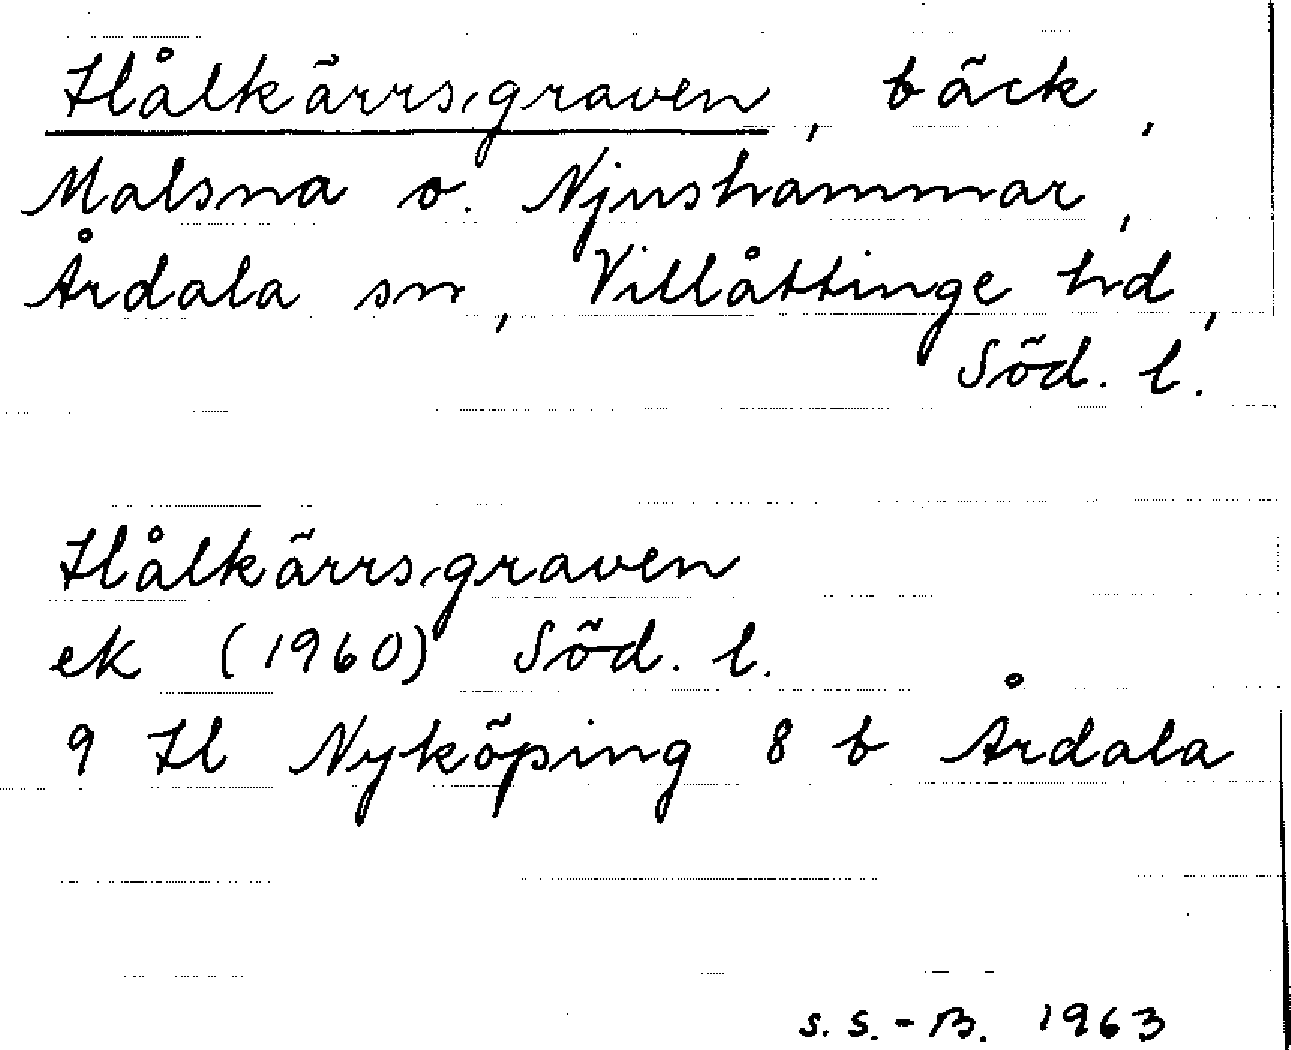 Hålkärrsgraven, bäck,
Malsna o. Njushammar,
Årdala sn, Villåttinge hd,
Söd. l.
Hålkärrsgraven
ek (1960) Söd. l.
9 H Nyköping 8 b Årdala
S. S.-B. 1963